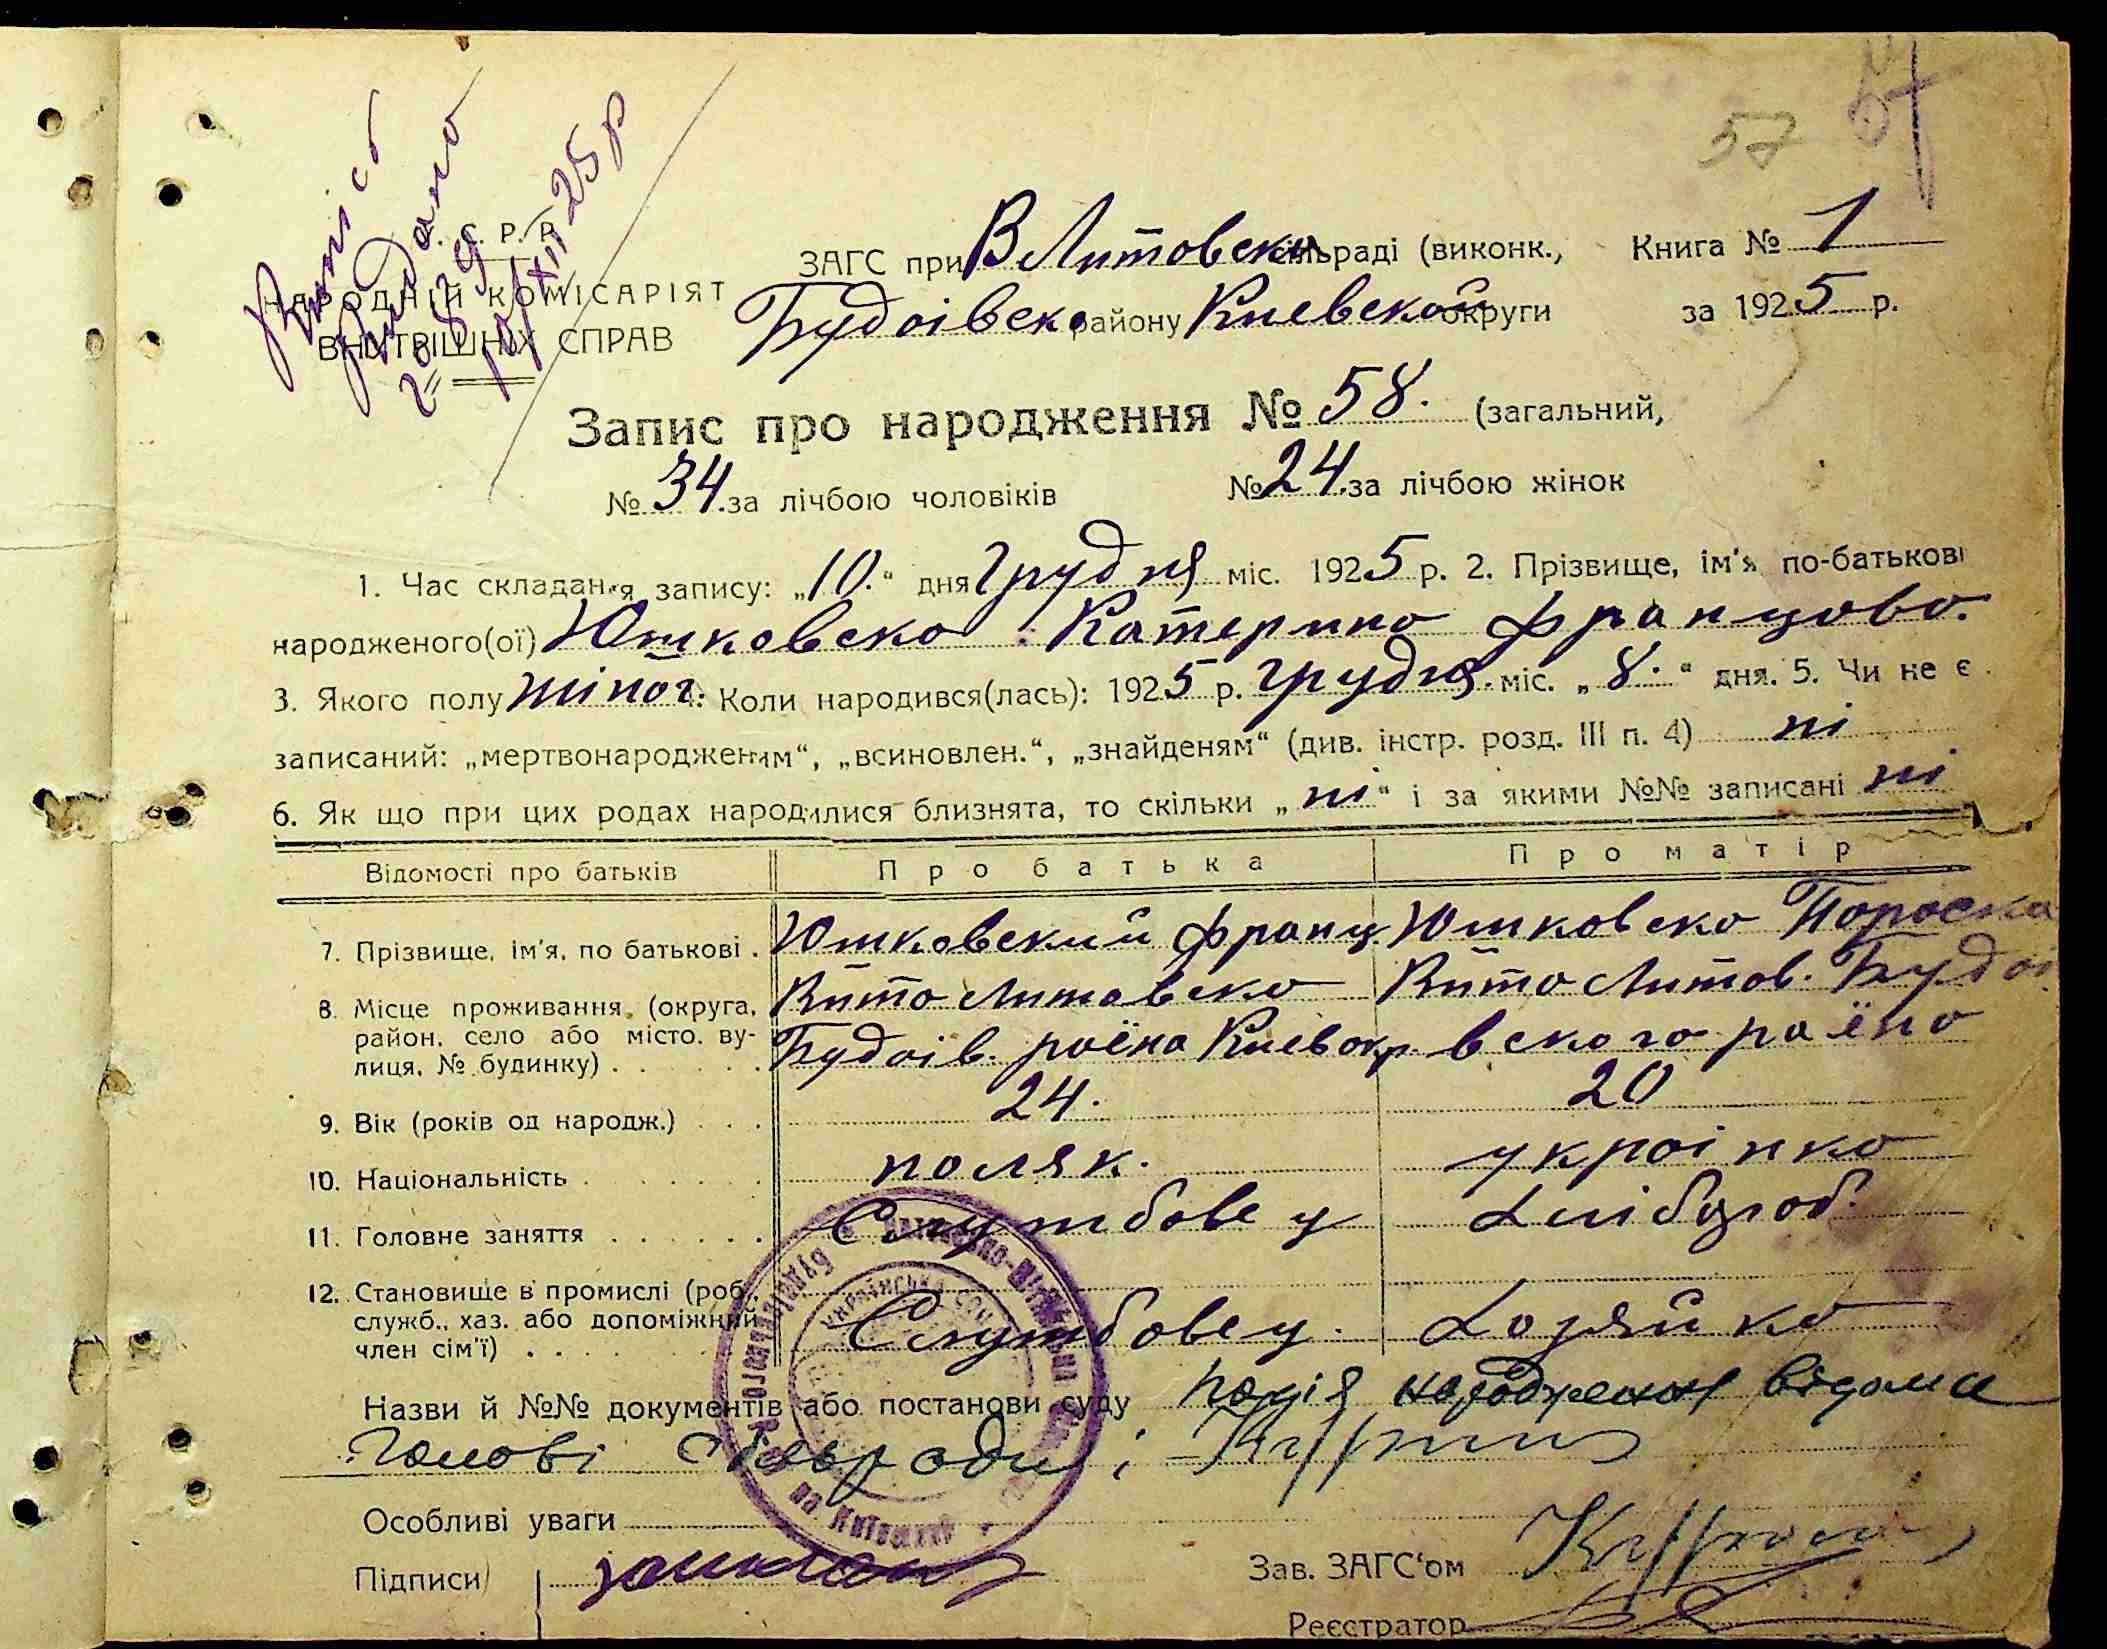 57 57
Виніс
Видано
№ 839
10/XII 25 р
С. Р. Р.
НАРОДНІЙ КОМІСАРІЯТ
ВНУТРІШНІХ СПРАВ
ЗАГС при В Литовско сільраді (виконк., Книга № 1
Будоївск району Киевской округи за 1925 р.
Запис про народження № 58. (загальний,
№ 34. за лічбою чоловіків № 24. за лічбою жінок
1. Час складання запису: „10.“ дня грудня міс. 1925 р. 2. Прізвище, ім'я, по-батькові
народженого(ої) Юшковско Катерино Францово.
3. Якого полу жіноч. 4. Коли народився(лась): 1925 р. грудня. міс. „8.“ дня. 5. Чи не є
записаний: „мертвонародженим“, „всиновлен.“, „знайденям“ (див. інстр. розд. III п. 4) ні
6. Як що при цих родах народилися близнята, то скільки „ні“ і за якими №№ записані ні
Відомості про батьків Про батька Про матір
7. Прізвище, ім'я, по батькові . Юшковский Франц Юшковско Пороска
8. Місце проживання, (округа, Вито Литовско Вито Литов. Будоі
район, село або місто, ву- Будоів. роёна Киев окр. вского роёно
лиця, № будинку) . . . . . .
9. Вік (років од народж.) . . . 24. 20
10. Національність . . . . . . . поляк. украінко
11. Головне заняття . . . . . . Службовец Хлібороб.
12. Становище в промислі (роб.,
служб., хаз. або допоміжний Службовец. Хозяйко
член сім'ї) . . . .
Назви й №№ документів або постанови суду Подія народження відома
Голові сільради і
Особливі уваги
Підписи Зав. ЗАГС'ом
Реєстратор